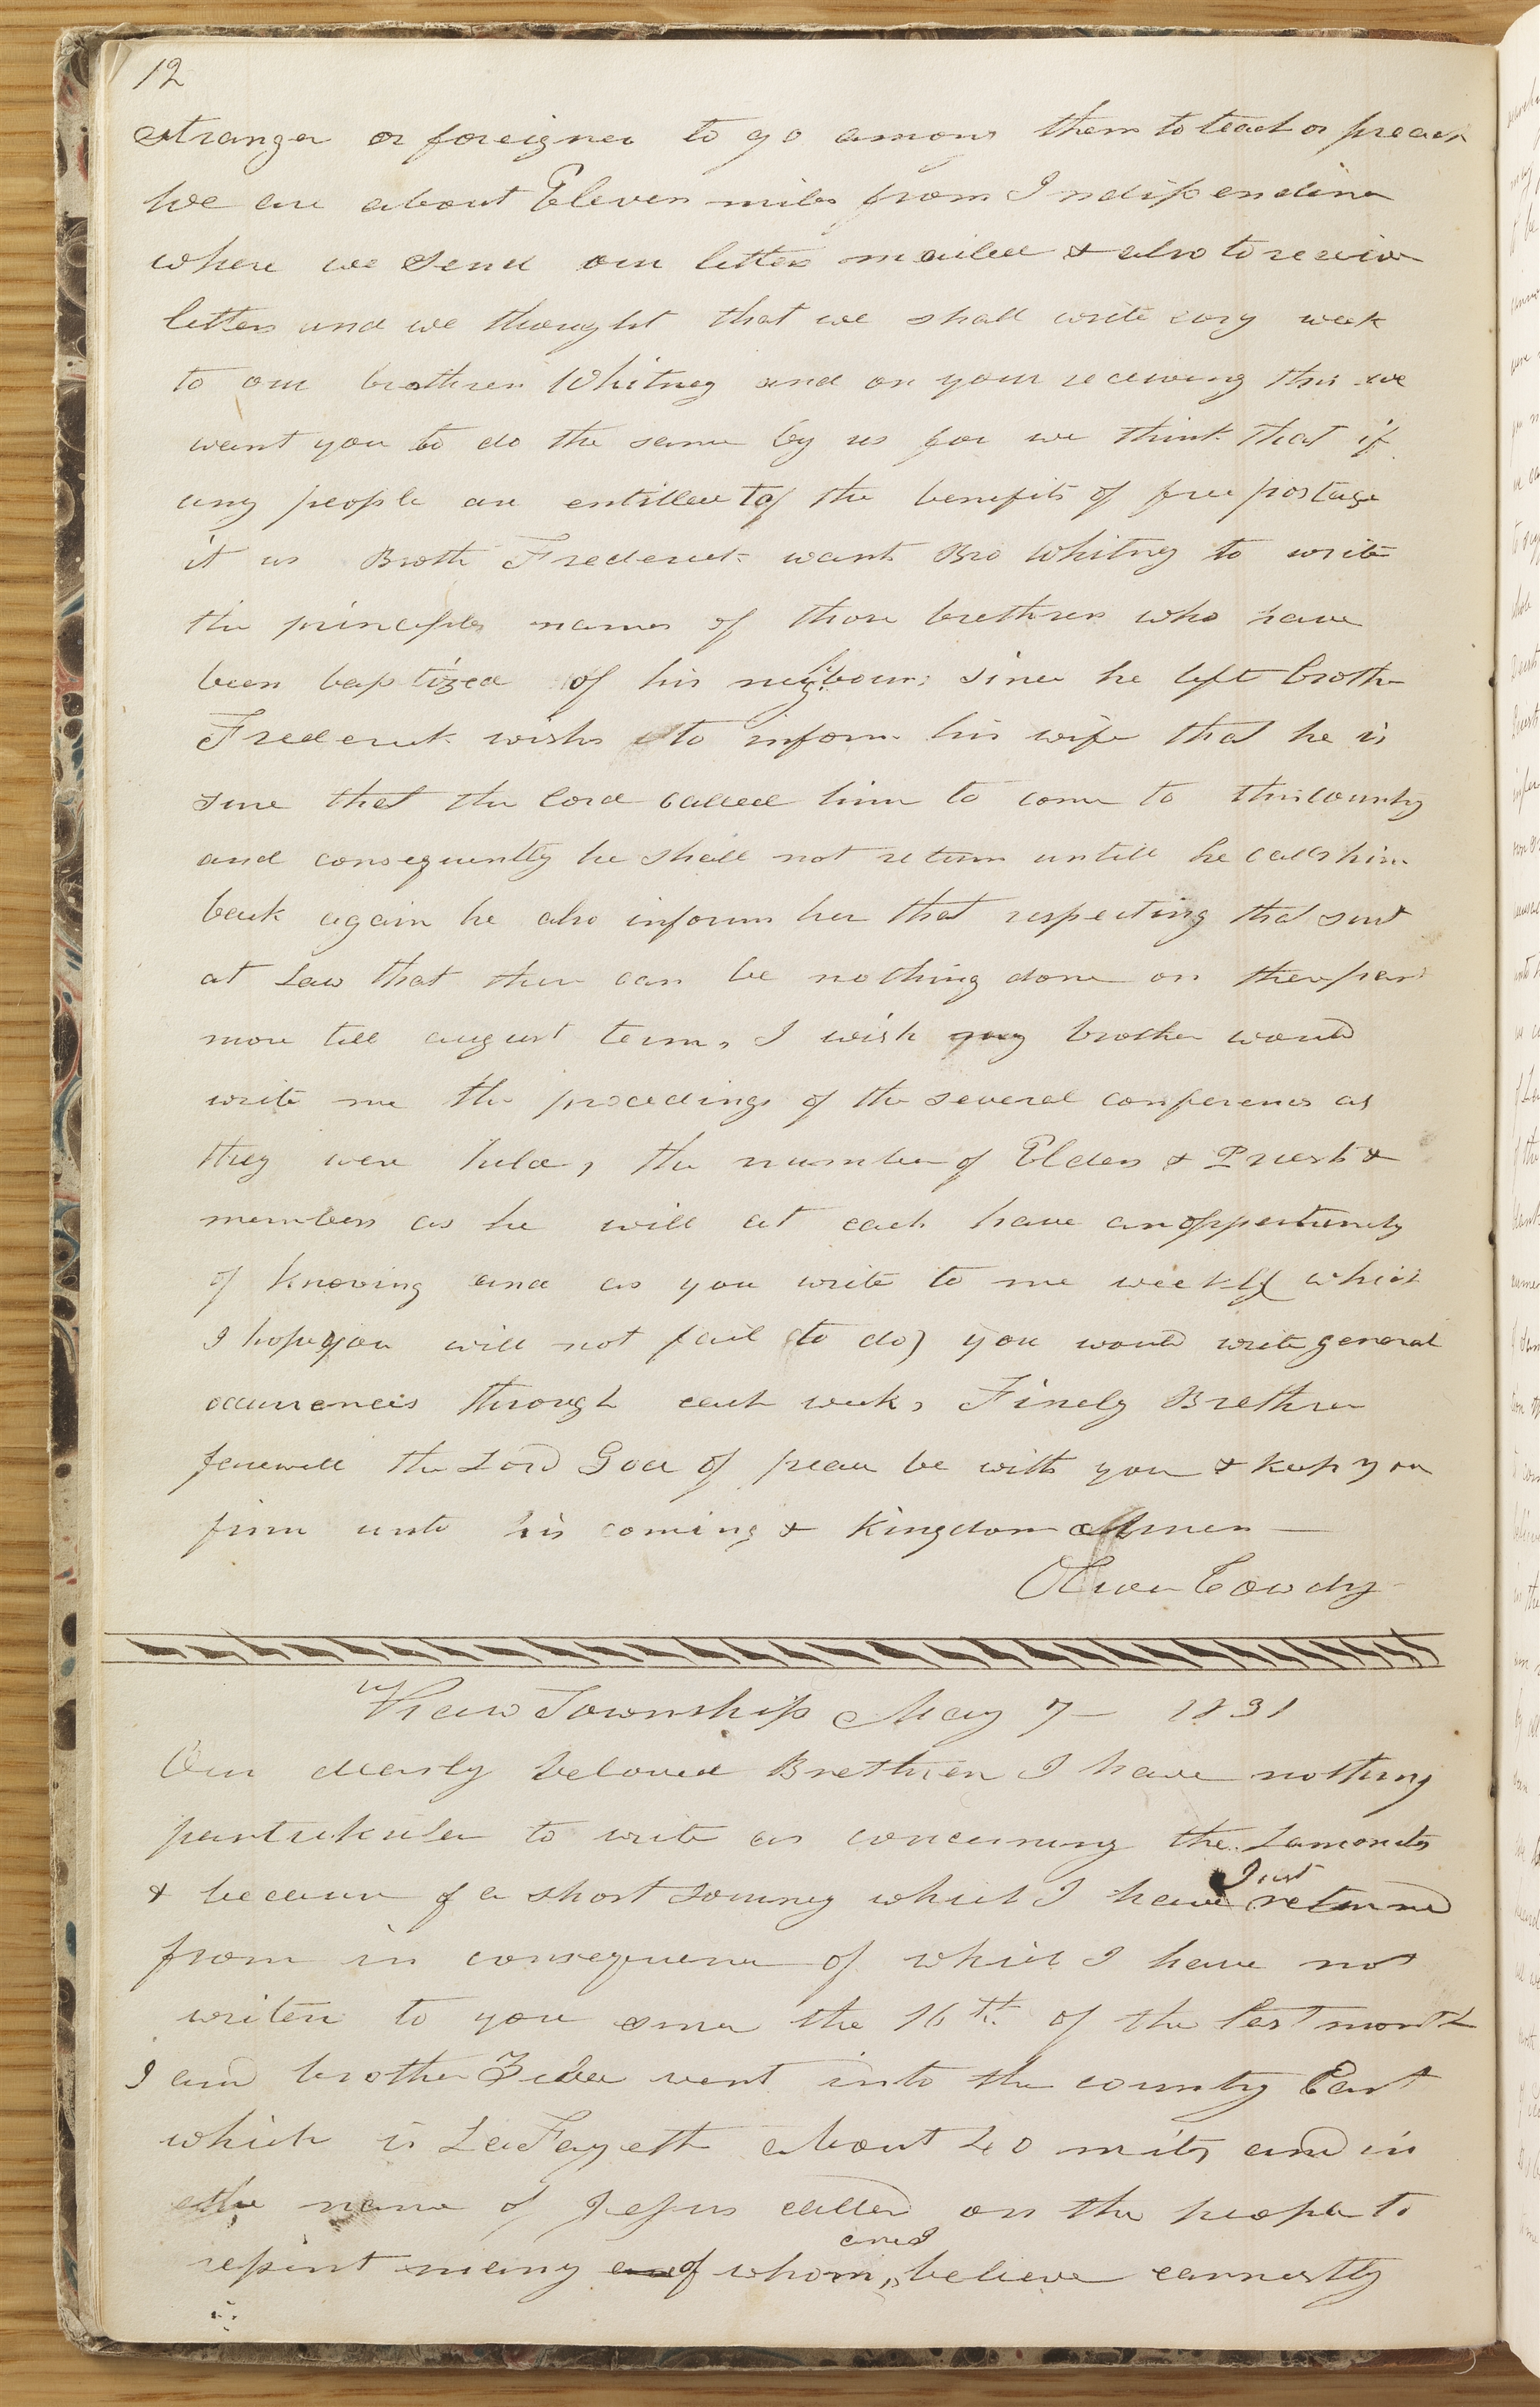 12
stranger or foreigner to go among them to teach or preach
we are about Eleven miles from Indipendince
where we send our letters mailed & also to receive
letters and we thought that we shall write evry week
to our brethren Whitney and on your receiving this we
want you to do the same by us for we think that if
any people are entitled to the benefits of free postage
it us Broth Frederick wants Bro Whitney to write
the principle names of those brethren who have
been baptized of his neighbours since he left brother
Frederick wishes to inform his wife that he is
sure that the lord called him to come to this country
and consequently he shall not return untill he calls him
back again he also informs her that respecting that suit
at Law that there can be nothing done on their part
more till august term, I wish my brother would
write me the procedings of the several conferences as
they were held, the number of Elders & Priests &
members as he will at each have an oppertunity
of knowing and as you write to me weekly (which
I hope you will not fail to do) you would write general
occurrenceis through each week, Finely Brethren
farewell the Lord God of peace be with you & keep you
firm unto his coming & Kingdom Amen —
Oliver Cowdry
Kaw Township May 7 — 1831
Our dearly beloved Brethren I have nothing
partickular to write as concerning the Lamonites
& because of a short Journey which I have Just returned
from in consequence of which I have not
writen to you since the 16th. of the last month
I and brother Ziba went into the county East
which is LaFayett about 40 mils and in
the name of Jesus called on the people to
repent many of whom are I believe earnestly